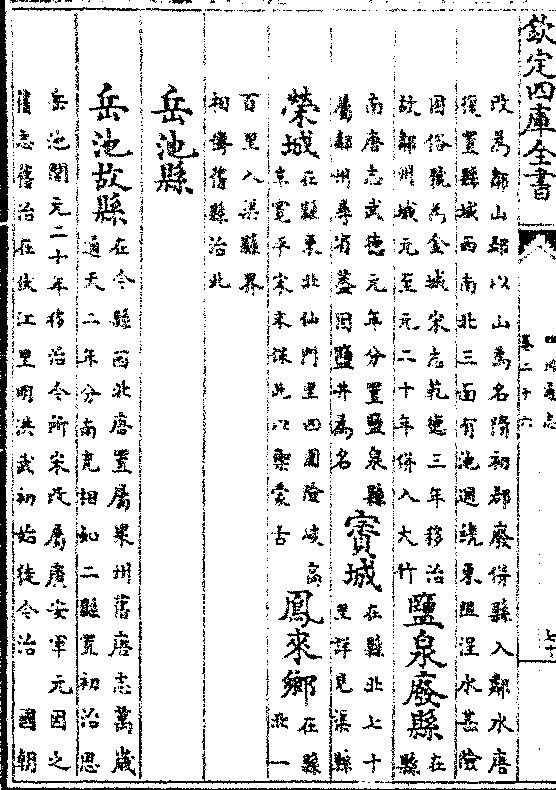 欽定四庫全書
四川通志
卷二十六
七十
改為鄰山郡以山為名隋初郡廢併縣入鄰水唐
復置縣城西南北三面有池週繞東阻溼水甚險
因俗號為金城宋志乾德三年移治
故鄰州城元至元二十年併入大竹
鹽泉廢縣
在
縣
南唐志武德元年分置鹽泉縣
屬鄰州尋省蓋因鹽井為名
賨城
在縣北七十
里詳見渠縣
榮城
在縣東北仙門里四圍險峻高
寬平宋末保此以禦蒙古
鳳來鄉
在縣
北一
百里入渠縣界
相傳舊縣治此
岳池縣
岳池故縣
在今縣西北唐置屬果州舊唐志萬歲
通天二年分南充相如二縣置初治思
岳池開元二十年移治今所宋改屬廣安軍元因之
舊志舊治在伏江里明洪武初始徙今治 國朝